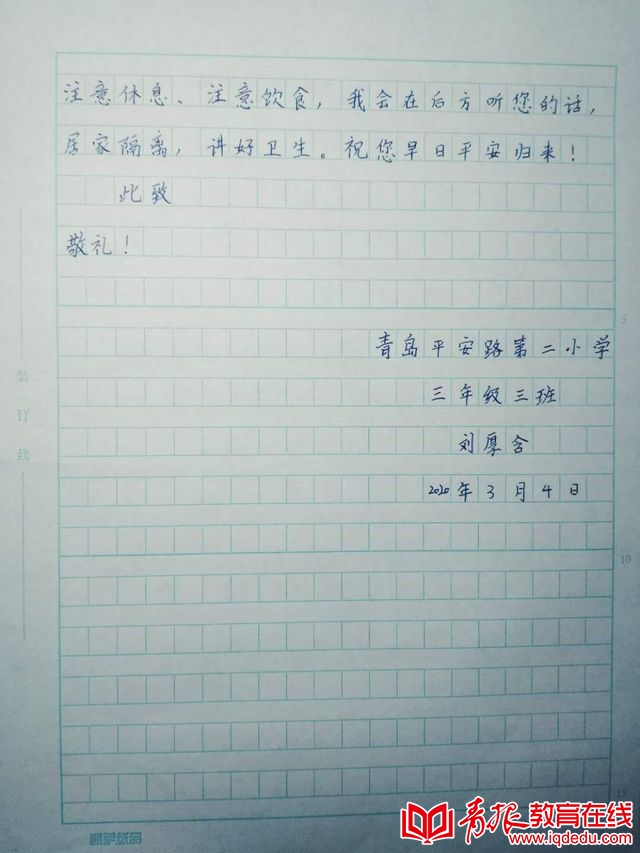 注意休息、注意饮食，我会在后方听您的话，
居家隔离，讲好卫生。祝您早日平安归来！
此致
敬礼！
青岛平安路第二小学
三年级三班
刘厚含
2020年3月4日
5
10
15
装订线
青报教育在线
www.iqdedu.com